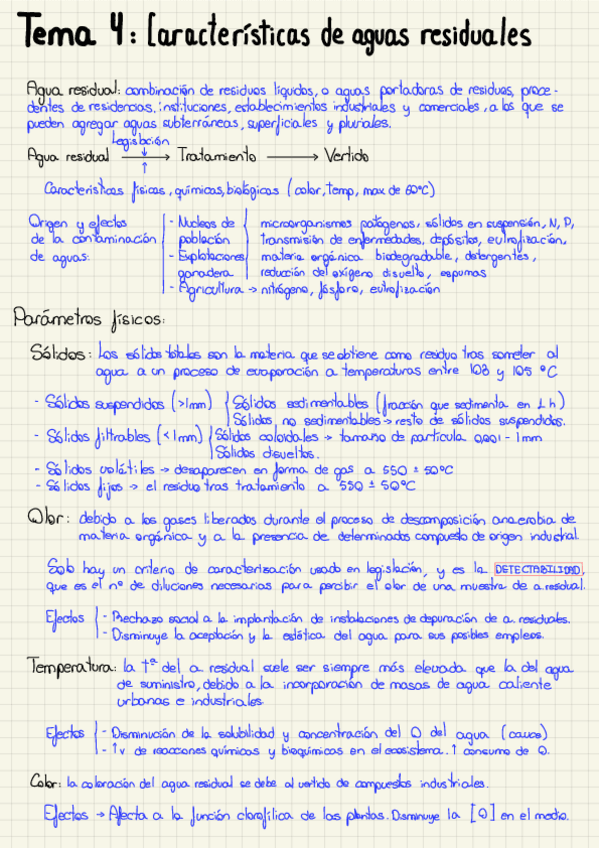 Tema 4: Características de aguas residuales
Agua residual: combinación de residuos líquidos, o aguas portadoras de residuos, proce-
dentes de residencias, instituciones, establecimientos industriales y comerciales, a los que se
pueden agregar aguas subterráneas, superficiales y pluviales.
Legislación
Agua residual → Tratamiento → Vertido
Características físicas, químicas, biológicas (color, temp, max de 60ºC)
Origen y efectos
de la contaminación
de aguas:
- Nucleos de población
- Explotaciones ganadera
microorganismos patógenos, sólidos en suspensión, N, P,
transmisión de enfermedades, depósitos, eutrofización,
materia orgánica biodegradable, detergentes,
reducción del oxígeno disuelto, espumas
- Agricultura → nitrógeno, fósforo, eutrofización
Parámetros físicos:
Sólidos: Los sólidos totales son la materia que se obtiene como residuo tras someter al
agua a un proceso de evaporación a temperaturas entre 103 y 105 ºC
- Sólidos suspendidos (>1mm) { Sólidos sedimentables (fracción que sedimenta en 1 h)
Sólidos no sedimentables → resto de sólidos suspendidos.
- Sólidos filtrables (<1mm) { Sólidos coloidales → tamaño de partícula 0,001 - 1mm
Sólidos disueltos.
- Sólidos volátiles → desaparecen en forma de gas a 550 ± 50ºC
- Sólidos fijos → el residuo tras tratamiento a 550 ± 50ºC
Olor: debido a los gases liberados durante el proceso de descomposición anaerobia de
materia orgánica y a la presencia de determinados compuesto de origen industrial.
Solo hay un criterio de caracterización usado en legislación, y es la DETECTABILIDAD,
que es el nº de diluciones necesarias para percibir el olor de una muestra de a.residual.
Efectos
- Rechazo social a la implantación de instalaciones de depuración de a. residuales.
- Disminuye la aceptación y la estética del agua para sus posibles empleos.
Temperatura: la tª del a. residual suele ser siempre más elevada que la del agua
de suministro, debido a la incorporación de masas de agua caliente
urbanas e industriales
Efectos
- Disminución de la solubilidad y concentración del O del agua (cauce)
- ↑v de reacciones químicas y bioquímicas en el ecosistema. ↑ consumo de O.
Color: la coloración del agua residual se debe al vertido de compuestos industriales.
Efectos → Afecta a la función clorofílica de las plantas. Disminuye la [O] en el medio.